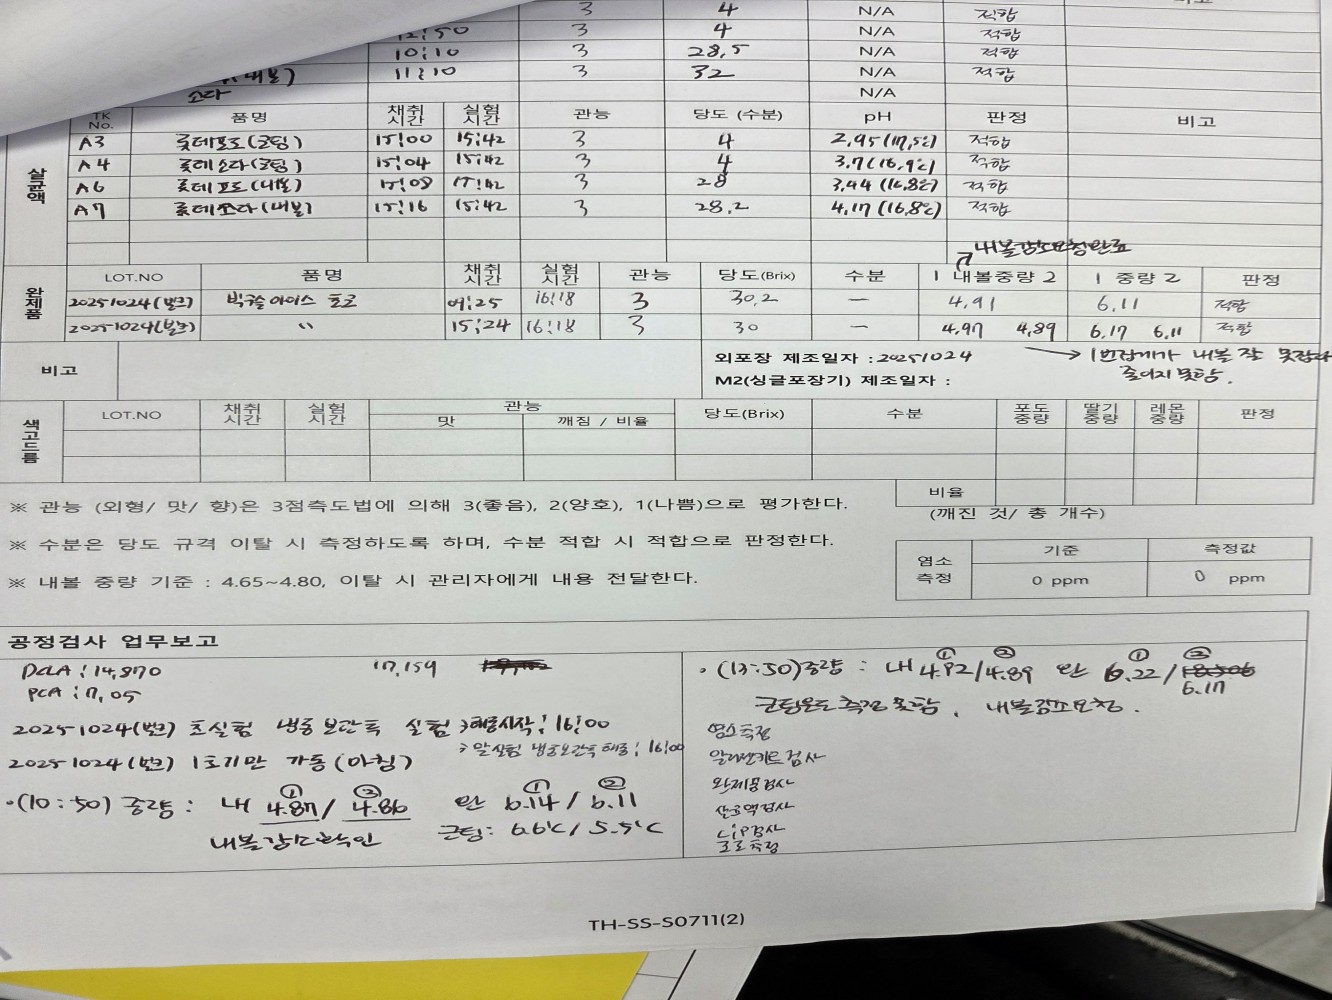 3 4 N/A 적합
12:50 3 4 N/A 적합
10:10 3 28.5 N/A 적합
(내볼) 11:10 3 32 N/A 적합
소다 N/A
살균액
TK No. 품명 채취시간 실험시간 관능 당도 (수분) pH 판정 비고
A3 롯데포도(코팅) 15:00 15:42 3 4 2.95(17.5℃) 적합
A4 롯데소다(코팅) 15:04 15:42 3 4 3.7(16.9℃) 적합
A6 롯데포도(내볼) 15:08 15:42 3 28 3.44(16.8℃) 적합
A7 롯데소다(내볼) 15:16 15:42 3 28.2 4.17(16.8℃) 적합
내볼감소요청완료
완제품
LOT.NO 품명 채취시간 실험시간 관능 당도(Brix) 수분 1 내볼중량 2 1 중량 2 판정
20251024 아이스 포도 09:25 16:18 3 30.2 - 4.91 6.11 적합
20251024 〃 15:24 16:18 3 30 - 4.97 4.89 6.17 6.11 적합
비고
외포장 제조일자 : 20251024 → 1번 내볼 잘 못잡아
줄이지 못함.
M2(싱글포장기) 제조일자 :
색고드름
LOT.NO 채취시간 실험시간 관능 당도(Brix) 수분 포도중량 딸기중량 레몬중량 판정
맛 깨짐 / 비율
비율
(깨진 것/ 총 개수)
※ 관능 (외형/ 맛/ 향)은 3점측도법에 의해 3(좋음), 2(양호), 1(나쁨)으로 평가한다.
※ 수분은 당도 규격 이탈 시 측정하도록 하며, 수분 적합 시 적합으로 판정한다.
※ 내볼 중량 기준 : 4.65~4.80, 이탈 시 관리자에게 내용 전달한다.
염소측정 기준 측정값
0 ppm 0 ppm
공정검사 업무보고
DCLA : 14,870 17,159
PCA : 7.05
20251024 초실험 냉동보관톡 실험 → 해동시작 : 16:00
→ 알실험 냉동보관톡 해동 : 16:00
20251024 1호기만 가동(아침)
·(10:50) 중량 : 내 ① 4.87 / ② 4.86 완 ① 6.14 / ② 6.11
내볼감소확인 코팅 : 6.6℃ / 5.5℃
·(13:50) 중량 : 내 ① 4.92 / ② 4.89 완 ① 6.22 / ② 6.17
코팅온도 측정 못함, 내볼감소요청.
염소측정
알러젠키트검사
완제품검사
살균액검사
CIP검사
측정
TH-SS-S0711(2)